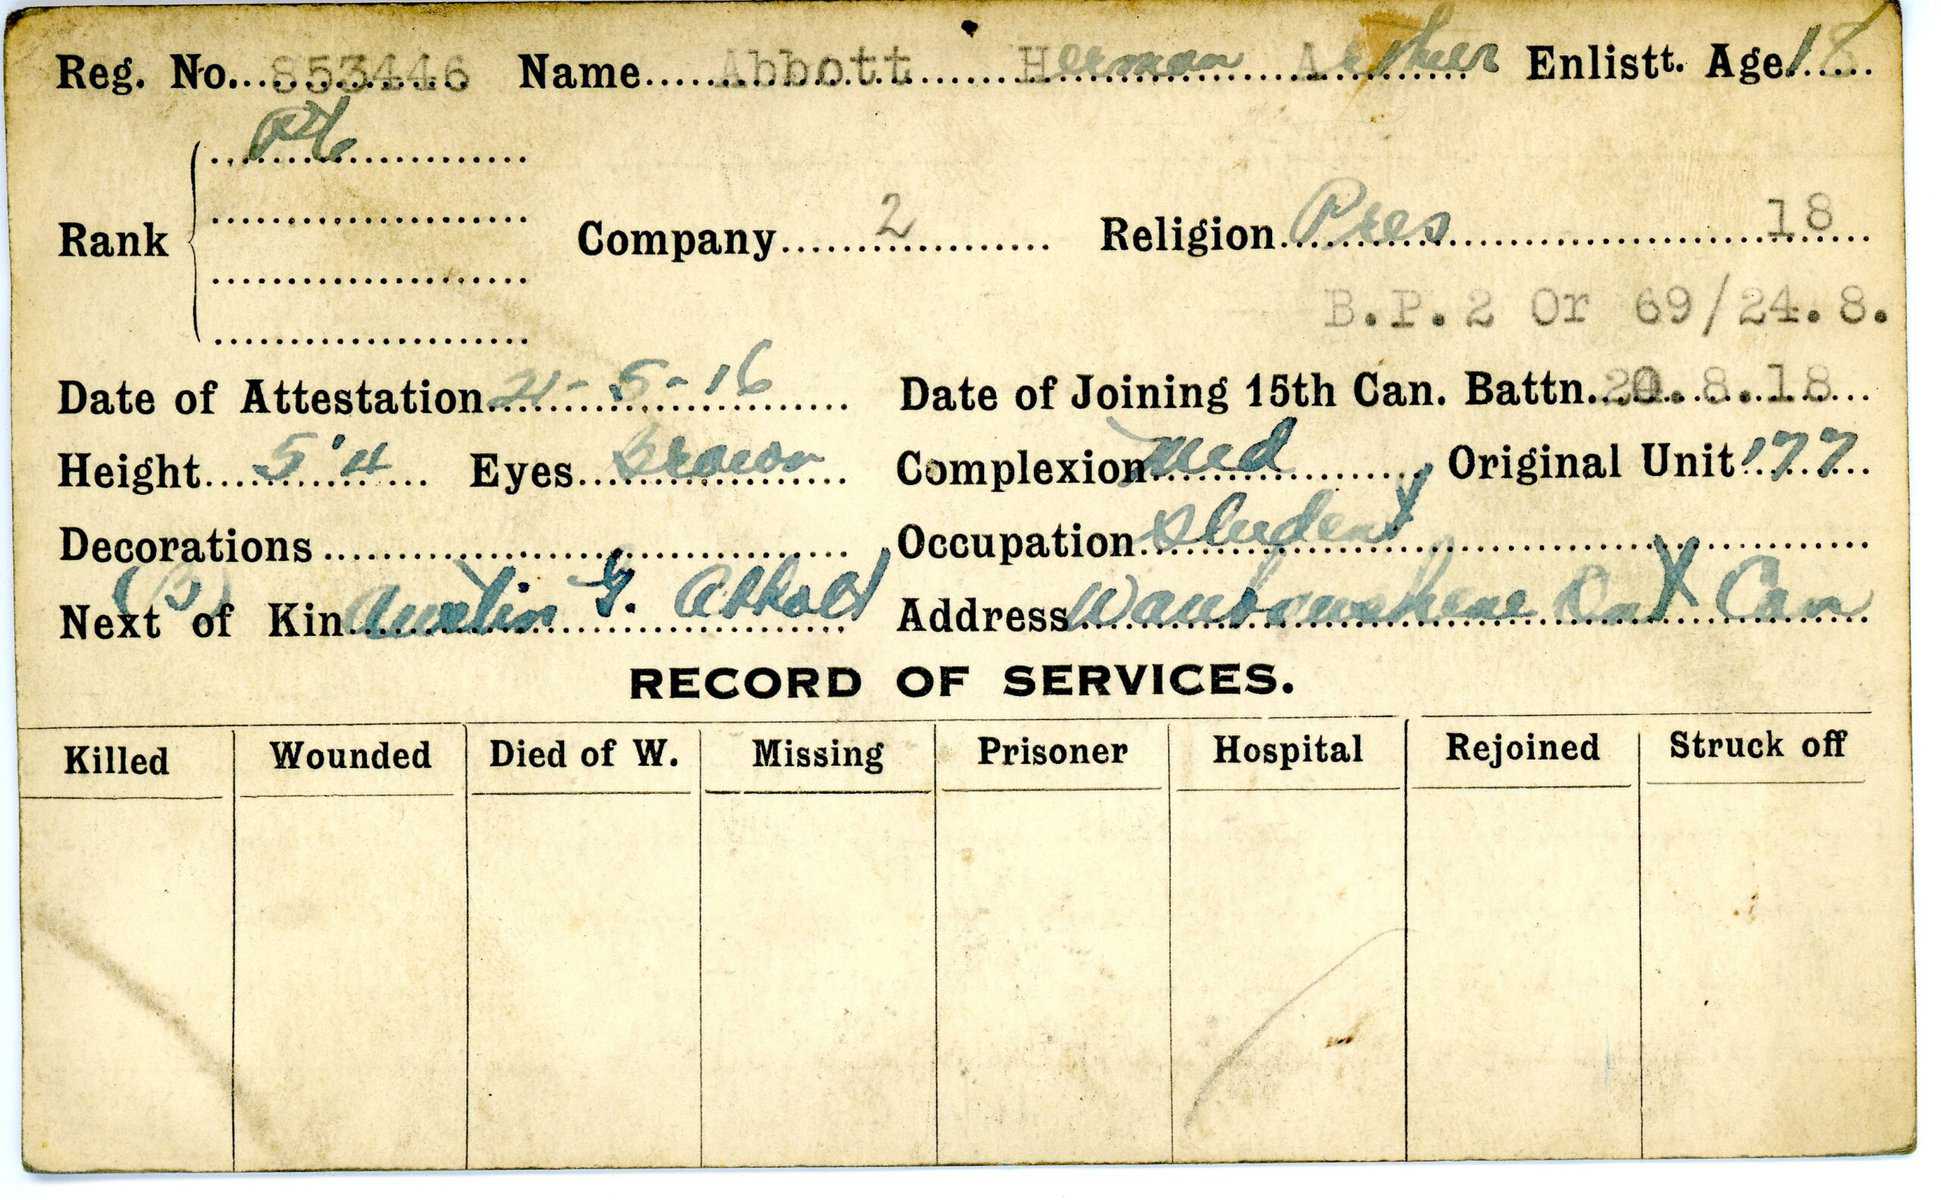 Reg. No. 853446 Name Abbott Herman Arthur Enlistt. Age 18
Pte
Rank Company 2 Religion Pres 18
B.P.2 Or 69/24.8.
Date of Attestation 21-5-16 Date of Joining 15th Can. Battn. 8.18
Height 5'4 Eyes Brown Complexion Med Original Unit 177
Decorations Occupation Student
(B)
Next of Kin Austin G. Abbott Address Waubaushene Ont Can
RECORD OF SERVICES.
Killed Wounded Died of W. Missing Prisoner Hospital Rejoined Struck off